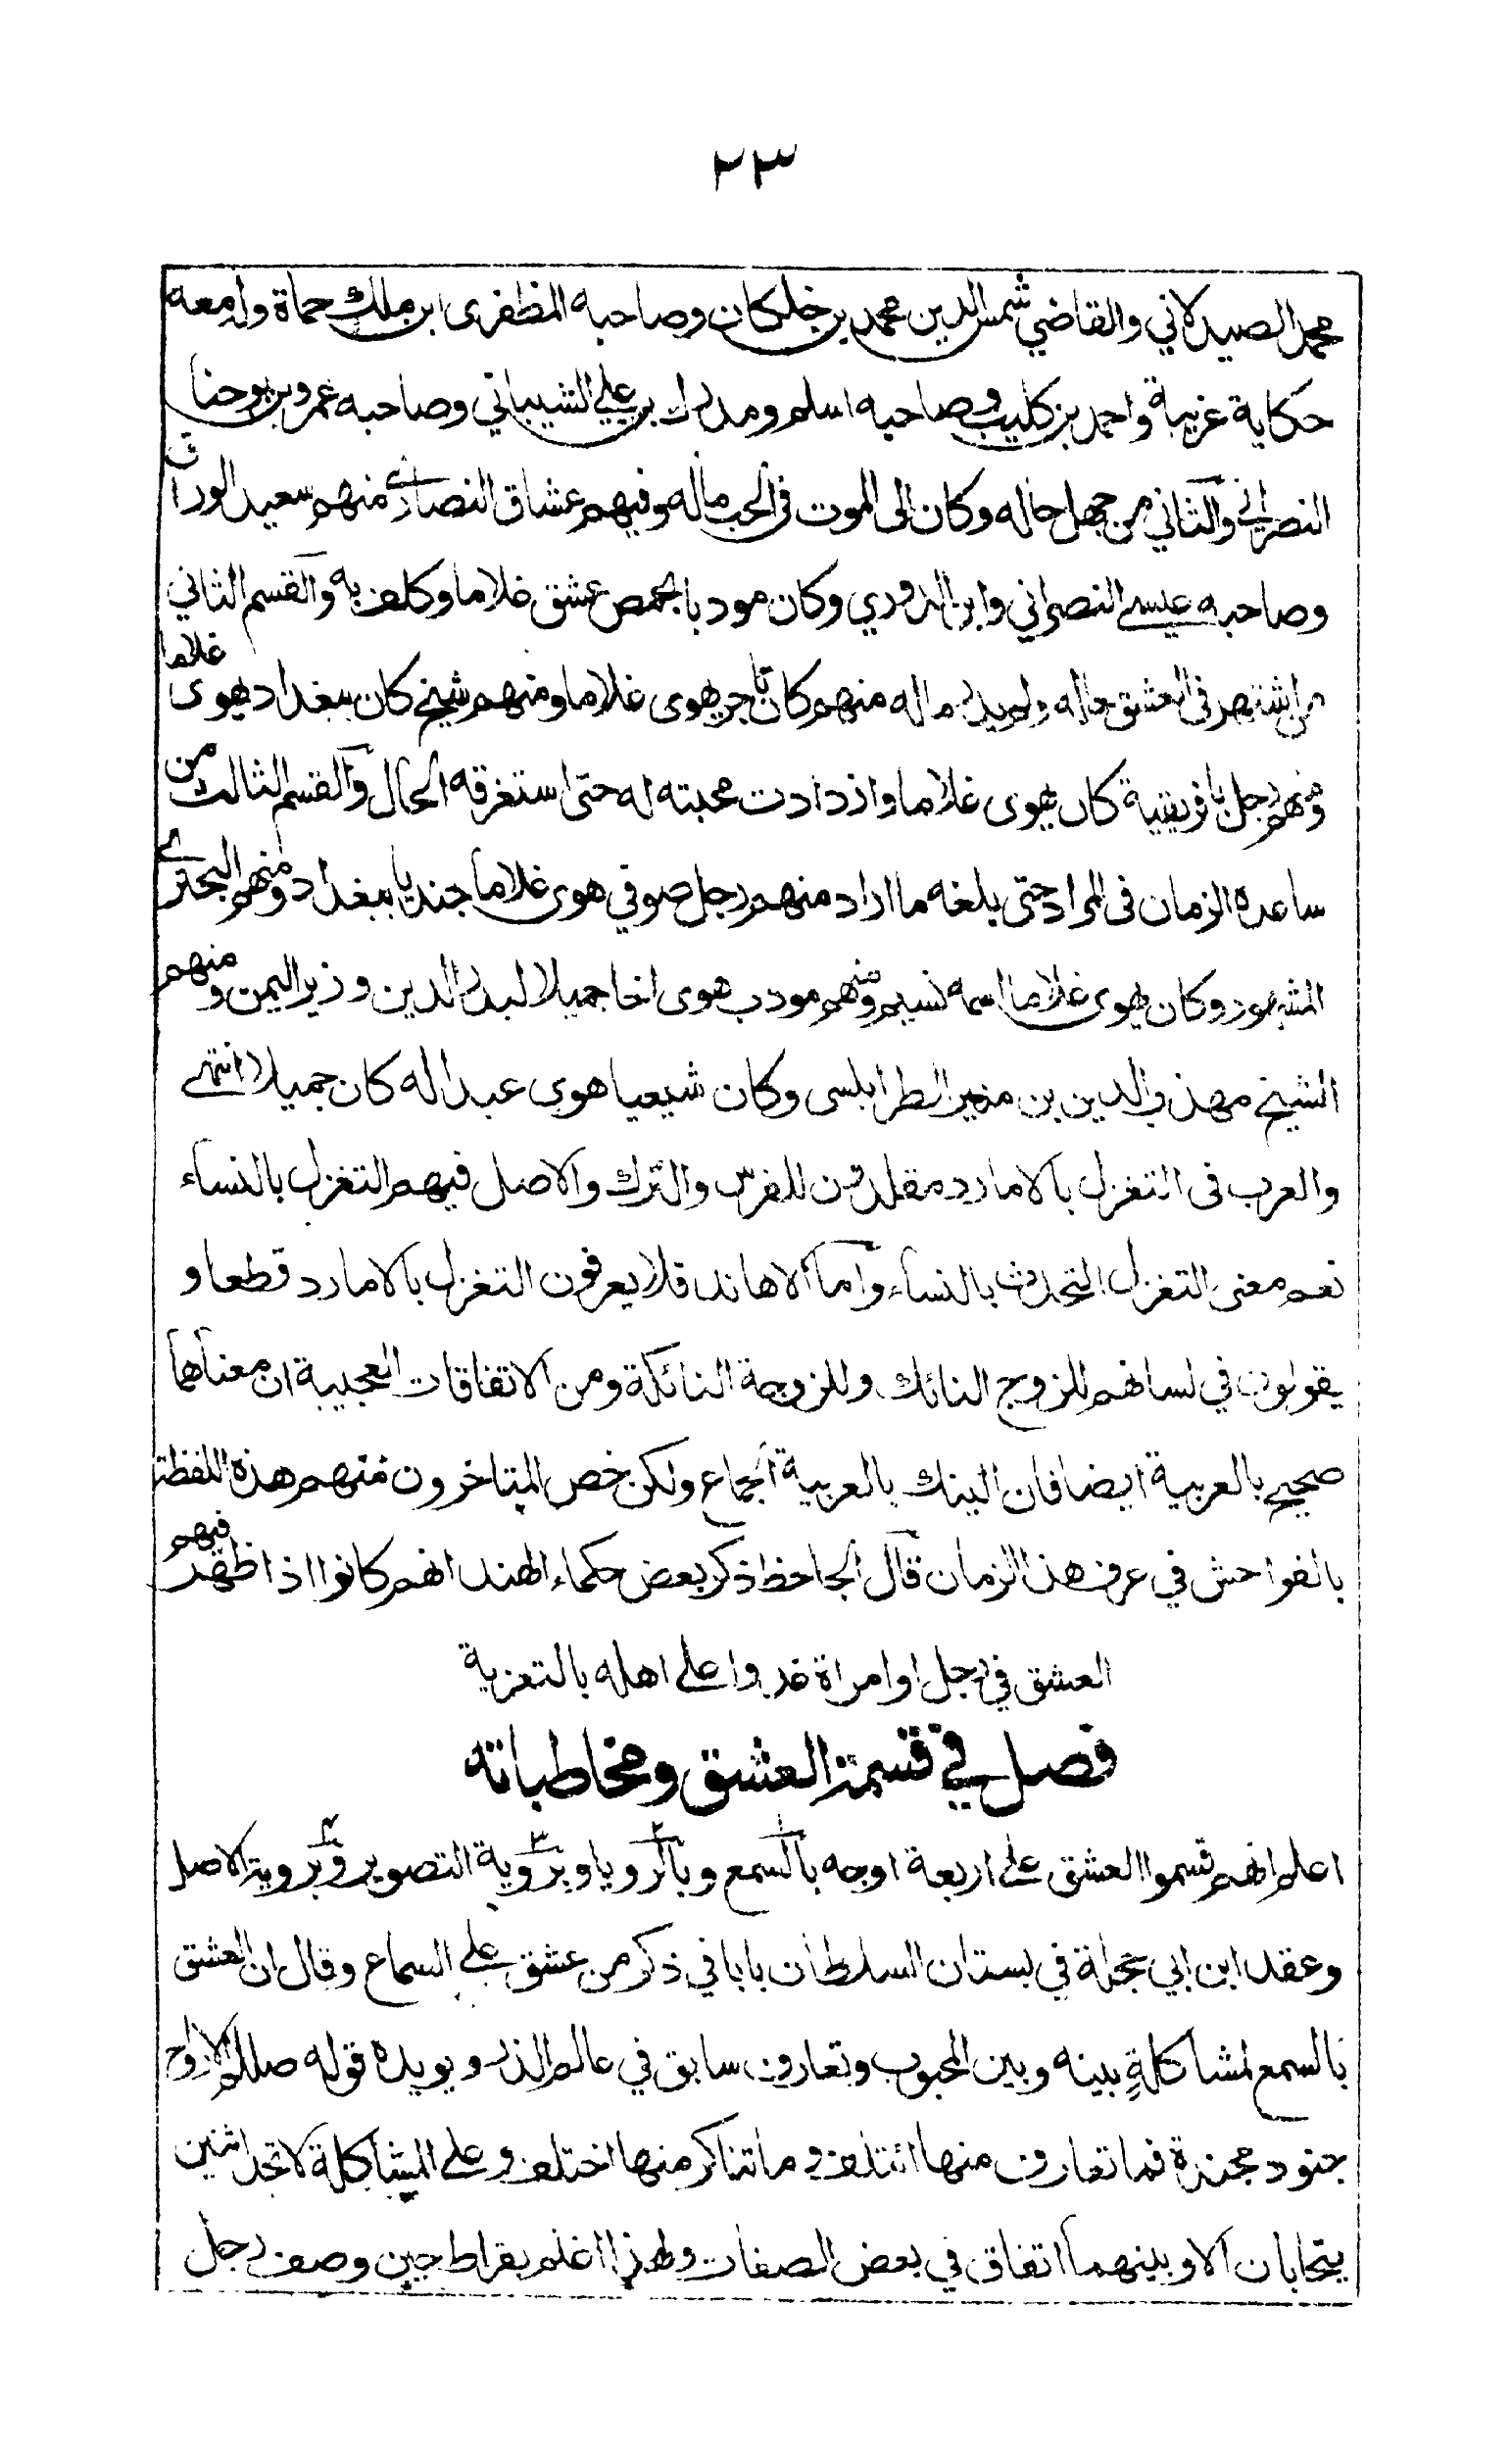 ٢٣
محمد الصيدلاني والقاضي شمس الدين محمد بن خلكان وصاحبه المظفرى ابن ملك حماة وله معه
حكاية غريبة واحمد بن كليب وصاحبه اسلم ومدرك بن علي الشيباني وصاحبه عمرو بن يوحنا
النصراني والثاني من جهل حاله وكان الى الموت فى الحب ماله وفيهم عشاق النصارى منهم سعيد الوراق
وصاحبه عيسى النصراني وابن الدوري وكان مودبا بحمص عشق غلاما وكلف به والقسم الثاني
من اشتهر فى العشق حاله ولم يدر ماله منهم كان تاجر يهوى غلاما ومنهم شيخ كان ببغداد يهوى غلاما
ومنهم رجل بافريقية كان يهوى غلاما وازدادت محبته له حتى استغرقه الحال والقسم الثالث من
ساعده الزمان فى المراد حتى بلغه ما اراد منهم رجل صوفي هوى غلاما جنديا ببغداد ومنهم البحترى
المشهور وكان يهوى غلاما اسمه نسيم ومنهم مودب هوى اخا جميلا لبدر الدين وزير اليمن ومنهم
الشيخ مهذب الدين بن منير الطرابلسى وكان شيعيا هوى عبدا له كان جميلا انتهى
والعرب فى التغزل بالامارد مقلدون للفرس والترك والاصل فيهم التغزل بالنساء
نعم معنى التغزل التحدث بالنساء واما الاهاند فلا يعرفون التغزل بالامارد قطعا و
يقولون في لسانهم للزوج النائك وللزوجة النائكة ومن الاتفاقات العجيبة ان معناهما
صحيح بالعربية ايضا فان النيك بالعربية الجماع ولكن خص المتاخرون منهم هذه اللفظة
بالفواحش في عرف هذا الزمان قال الجاحظ ذكر بعض حكماء الهند انهم كانوا اذا ظهر فيهم
العشق في رجل او امراة غدوا على اهله بالتعزية
فصل في قسمة العشق ومخاطباته
اعلم انهم قسموا العشق على اربعة اوجه بالسمع وبالرويا وبروية التصوير وبروية الاصل
وعقد ابن ابي حجلة في بستان السلطان بابا في ذكر من عشق على السماع وقال ان العشق
بالسمع لمشاكلةٍ بينه وبين المحبوب وتعارف سابق في عالم الذر ويويده قوله صللم الارواح
جنود مجندة فما تعارف منها ائتلف وما تناكر منها اختلف وعلى المشاكلة لا تجد اثنين
يتحابان الا وبينهما اتفاق في بعض الصفات ولهذا اغتم بقراط حين وصف رجل